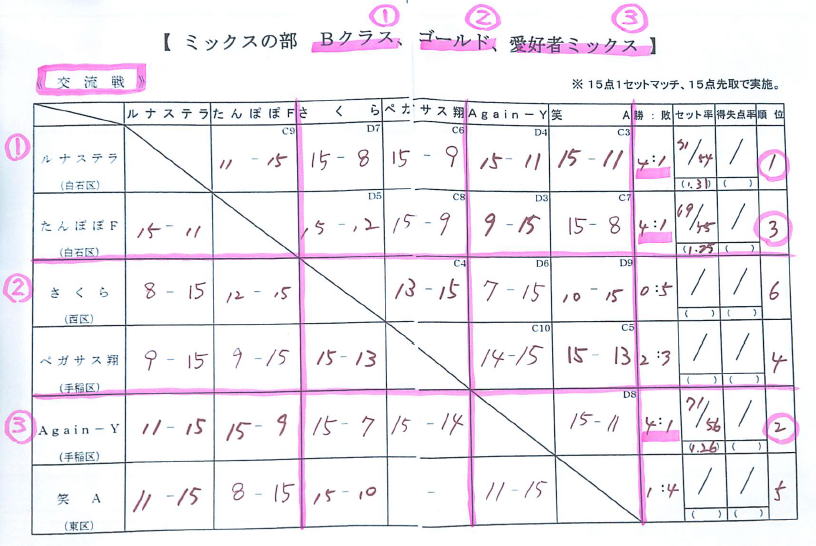 ① ② ③
【 ミックスの部 Bクラス、ゴールド、愛好者ミックス 】
《 交 流 戦 》
※ 15点1セットマッチ、15点先取で実施。
ルナステラ たんぽぽF さくら ペガサス翔 Again－Y 笑A 勝：敗 セット率 得失点率 順位
① ルナステラ (白石区) C9 11 - 15 D7 15 - 8 C6 15 - 9 D4 15 - 11 C3 15 - 11 4:1 / (1.31) / ( ) ①
たんぽぽF (白石区) 15 - 11 D5 15 - 12 C8 15 - 9 D3 9 - 15 C7 15 - 8 4:1 69/ (1.25) / ( ) ③
② さくら (西区) 8 - 15 12 - 15 C4 13 - 15 D6 7 - 15 D9 10 - 15 0:5 / ( ) / ( ) 6
ペガサス翔 (手稲区) 9 - 15 9 - 15 15 - 13 C10 14 - 15 C5 15 - 13 2:3 / ( ) / ( ) 4
③ Again－Y (手稲区) 11 - 15 15 - 9 15 - 7 15 - 14 D8 15 - 11 4:1 71/56 (1.26) / ( ) ②
笑A (東区) 11 - 15 8 - 15 15 - 10 - 11 - 15 1:4 / ( ) / ( ) 5